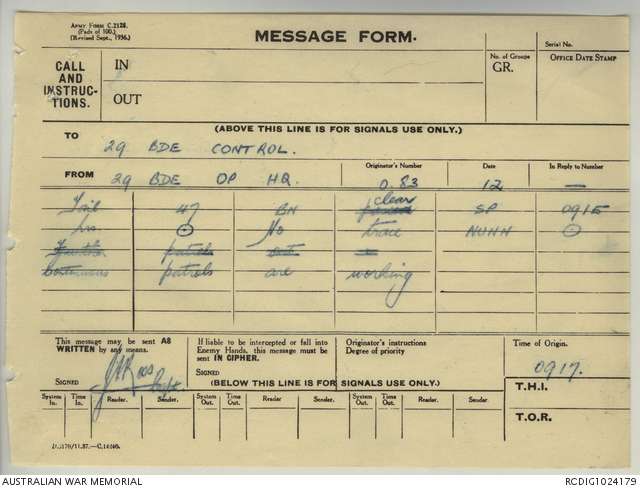 ARMY FORM C.2128.
(Pads of 100.)
(Revised Sept., 1936.)
MESSAGE FORM.
Serial No.
CALL AND INSTRUCTIONS.
IN
OUT
No. of Groups
GR.
OFFICE DATE STAMP
(ABOVE THIS LINE IS FOR SIGNALS USE ONLY.)
TO 29 BDE CONTROL.
FROM 29 BDE OP HQ.
Originator's Number 0.83
Date 12
In Reply to Number —
Tail 47 BN clear SP 0915
hrs ⊙ No trace NUNN ⊙
Further patrols out
Continuous patrols are working
This message may be sent AS WRITTEN by any means.
SIGNED
Capt.
If liable to be intercepted or fall into Enemy Hands, this message must be sent IN CIPHER.
SIGNED
Originator's instructions
Degree of priority
Time of Origin.
0917.
(BELOW THIS LINE IS FOR SIGNALS USE ONLY.)
T.H.I.
System In. Time In. Reader. Sender. System Out. Time Out. Reader. Sender. System Out. Time Out. Reader. Sender.
T.O.R.
AUSTRALIAN WAR MEMORIAL
RCDIG1024179